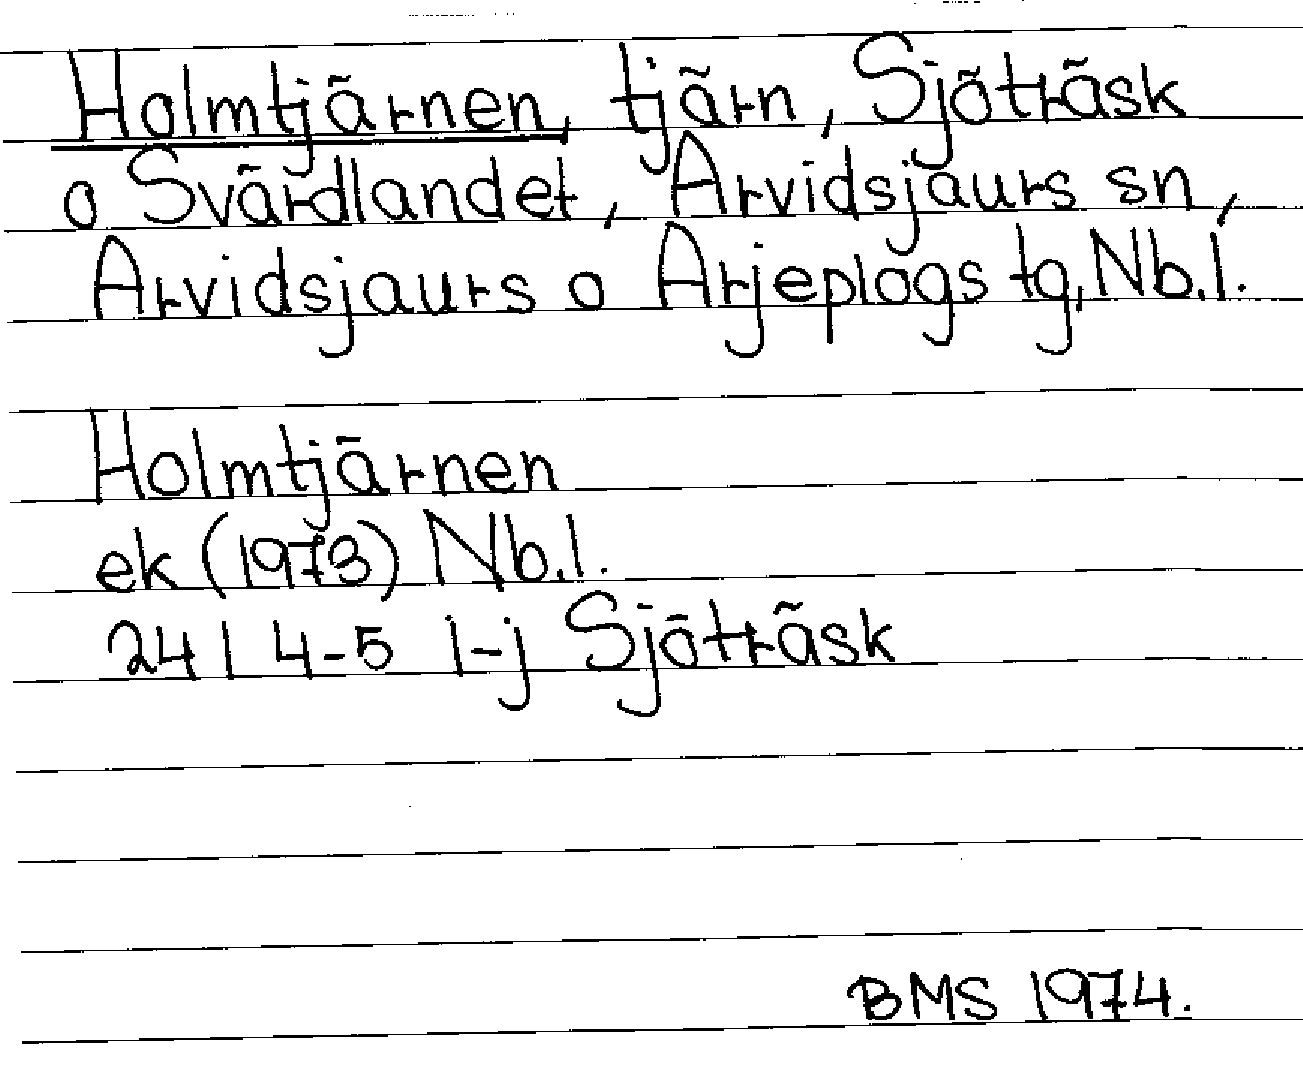 Holmtjärnen, tjärn, Sjöträsk
o Svärdlandet, Arvidsjaurs sn,
Arvidsjaurs o Arjeplogs tg, Nb.l.
Holmtjärnen
ek (1973) Nb.l.
24 I 4-5 i-j Sjöträsk
BMS 1974.